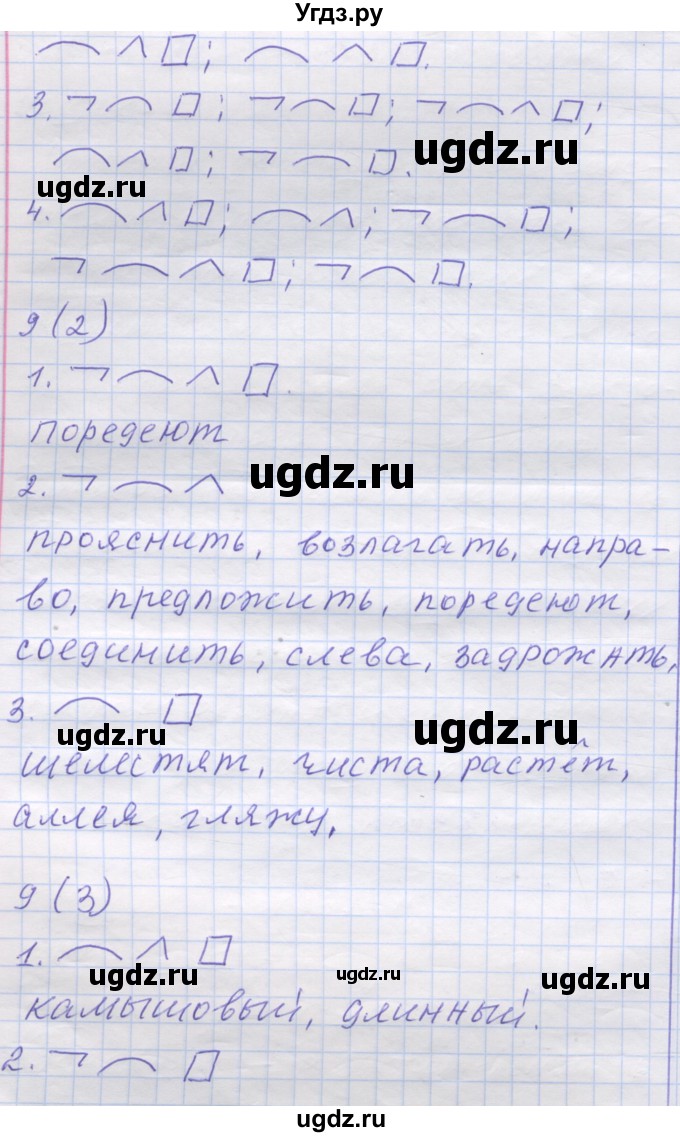 Угдз.ру
;
.
3. ; ; ;
ugdz.ru
; .
ugdz.ru
4. ; ; ;
; .
9 (2)
1. .
поредеют
ugdz.ru
2.
прояснить, возлагать, напра-
во, предложить, поредеют,
соединить, слева, задрожать,
3.
ugdz.ru ugdz.ru
шелестят, чиста, растёт,
аллея, гляжу,
9 (3)
1.
ugdz.ru ugdz.ru ugdz.ru
камышовый, длинный.
2.
ugdz.ru